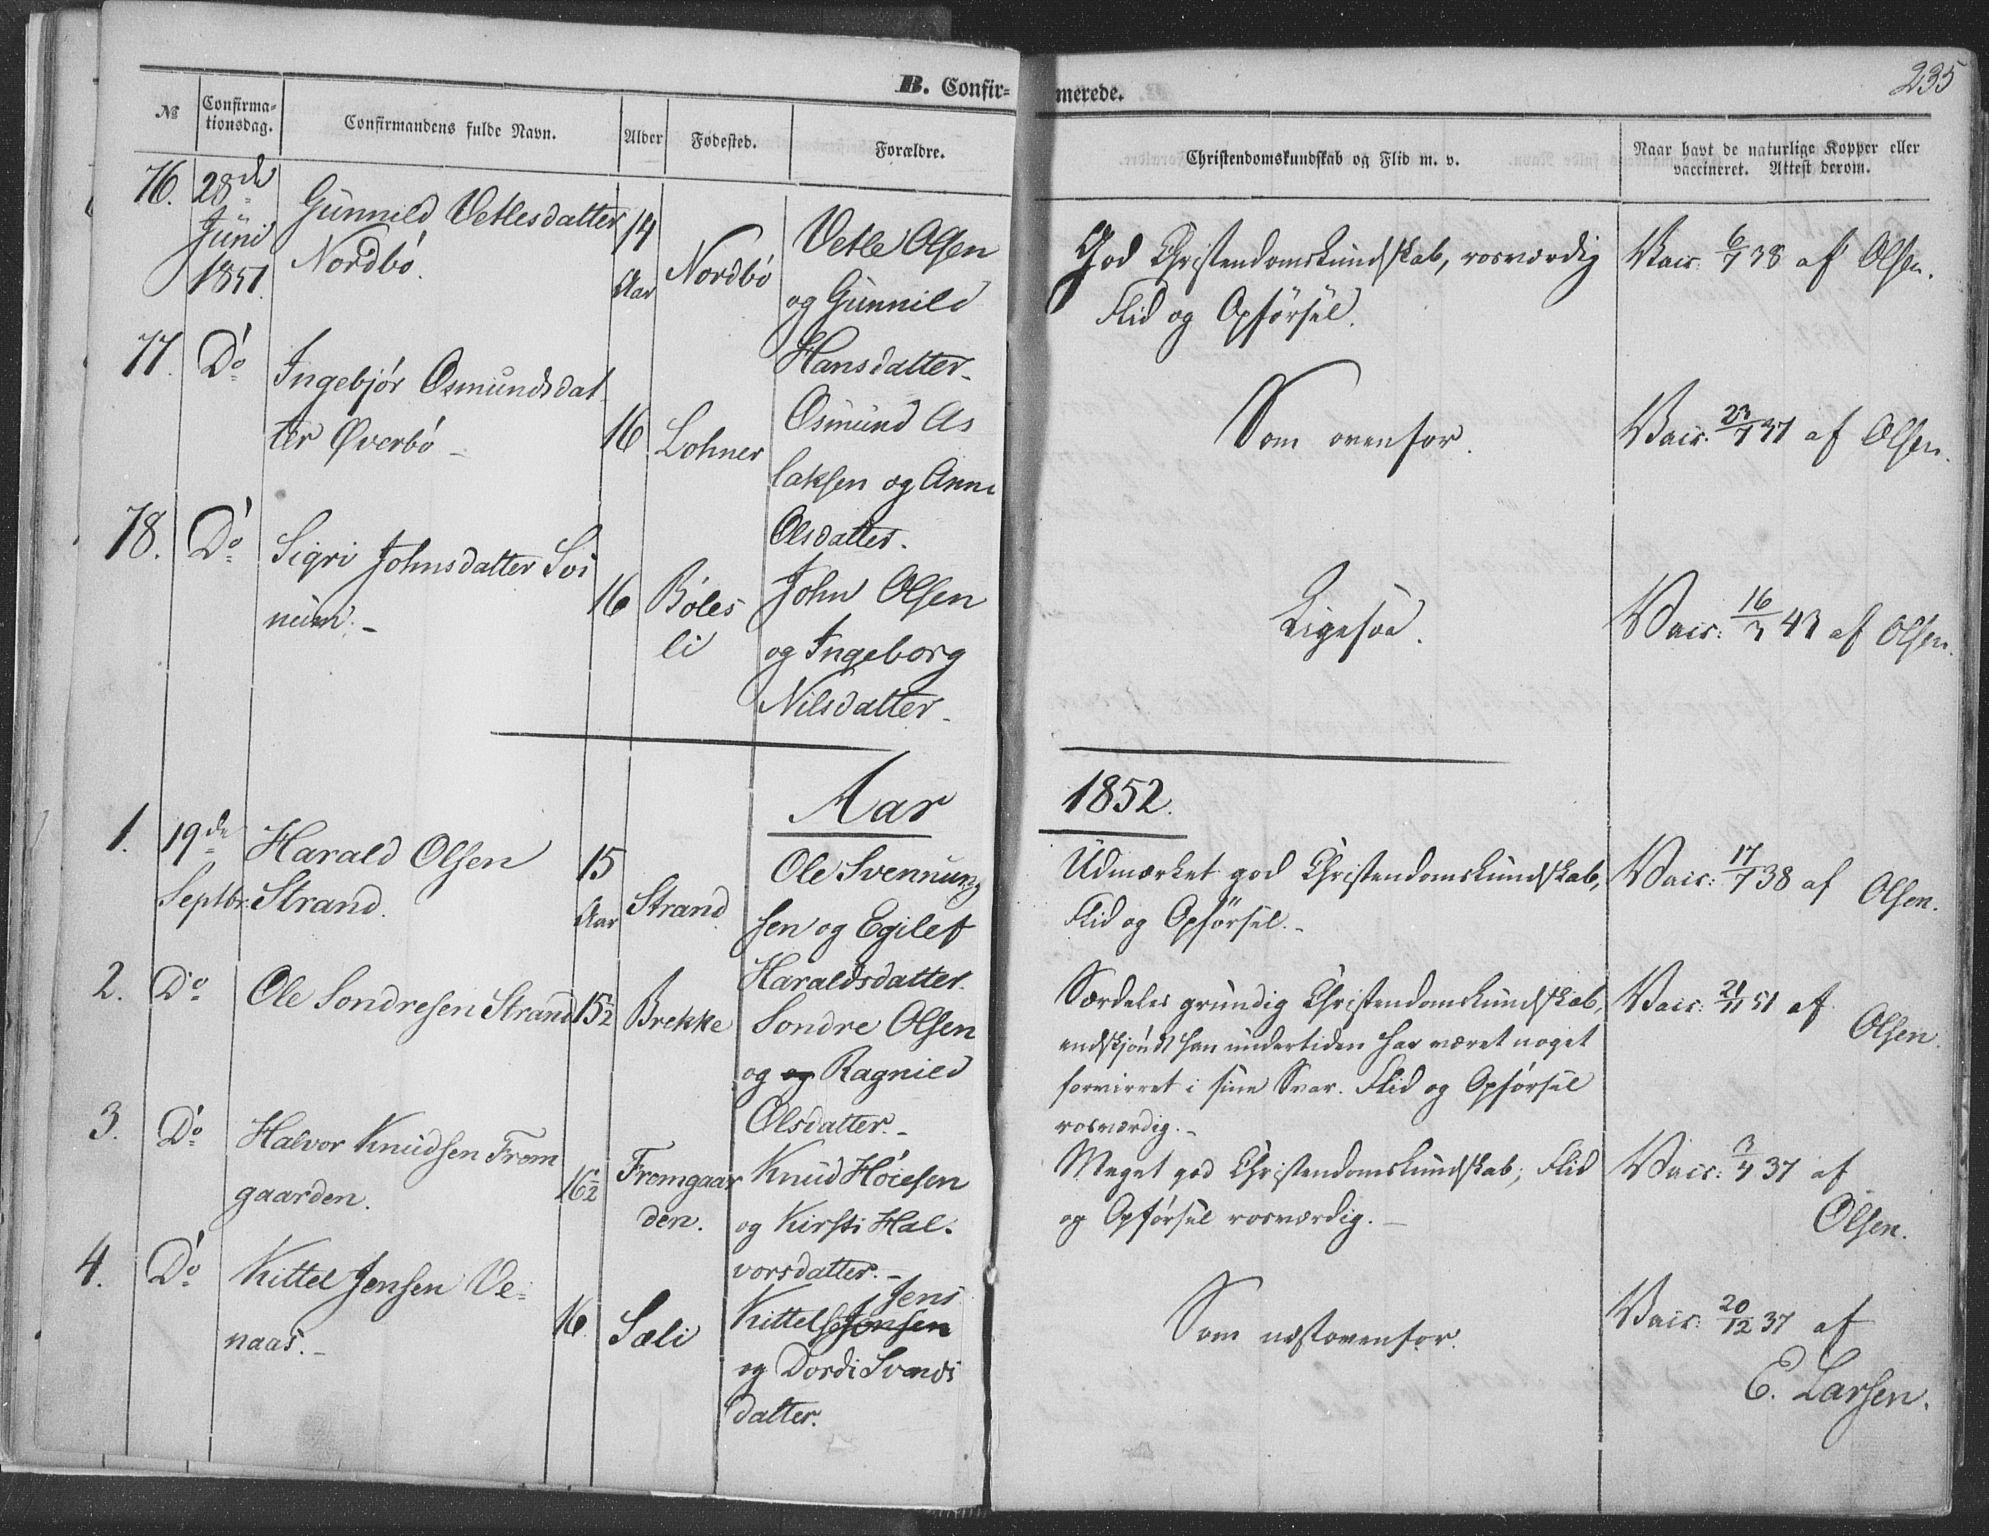 235
B. Confirmerede.
№ Confirmationsdag. Confirmandens fulde Navn. Alder Fødested. Forældre. Christendomskundskab og Flid m. v. Naar havt de naturlige Kopper eller vaccineret. Attest derom.
76. 28de Juni 1851. Gunnild Vetlesdatter Nordbö. 14 Aar Nordbö
Vetle Olsen
og Gunnild
Hansdatter
God Christendomskundskab, rosværdig
Flid og Opförsel.
Vacc: 6/7 38 af Olsen.
77. Do Ingebjör Osmundsdat
ter Øverbö 16 Lohner
Osmund As
laksen og Anne
Olsdatter.
Som ovenfor.
Vacc: 23/7 37 af Olsen.
78. Do Sigri Johnsdatter Svi
num. 16 Böles
li
John Olsen
og Ingeborg
Nilsdatter
Ligesaa.
Vacc: 16/7 43 af Olsen.
Aar 1852.
1. 19de Septbr. Harald Olsen
Strand. 15 Aar Strand
Ole Svennung
sen og Egilef
Haraldsdatter.
Udmærket god Christendomskundskab,
Flid og Opförsel.
Vacc: 17/7 38 af Olsen.
2. Do Ole Sondresen Strand 15½ Brekke
Sondre Olsen
og og Ragnild
Olsdatter.
Særdeles grundig Christendomskundskab,
endskjöndt han undertiden har været noget
forvirret i sine Svar. Flid og Opförsel
rosværdig.
Vacc: 21/11 51 af
Olsen.
3. Do Halvor Knudsen From
gaarden. 16½ Fromgaar
den.
Knud Höiesen
og Kirsti Hal
vorsdatter.
Meget god Christendomskundskab; Flid
og Opförsel rosværdig.
Vacc: 3/4 37 af
Olsen.
4. Do Kittel Jensen Ve
naas. 16 Sæli
Jens
Kittelse Jensen
og Dordi Svends
datter.
Som næstovenfor.
Vacc: 20/12 37 af
E. Larsen.